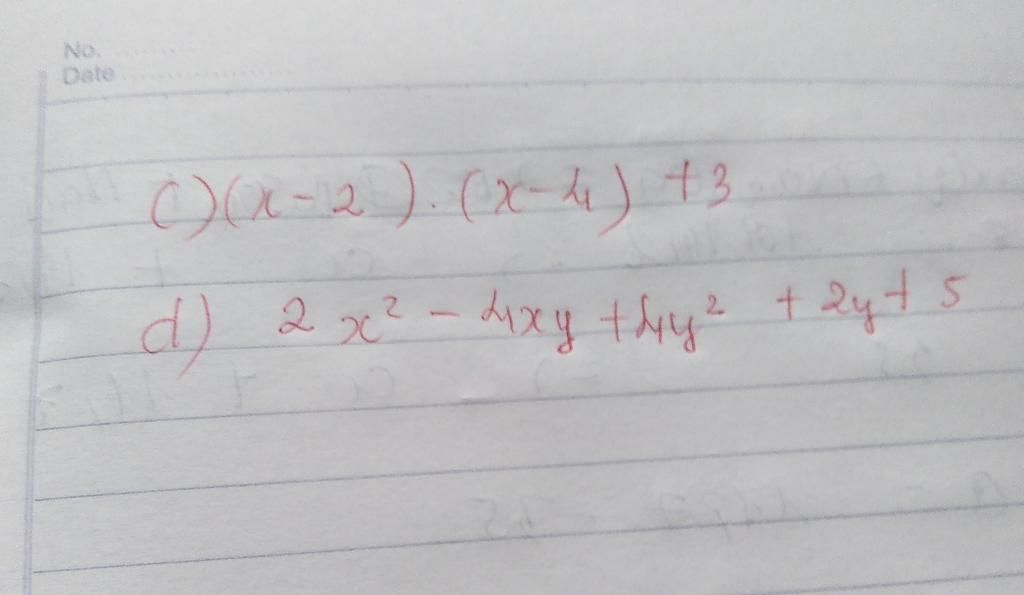 No.
Date
c) (x - 2) . (x - 4) + 3
d) 2x² - 4xy + 4y² + 2y + 5